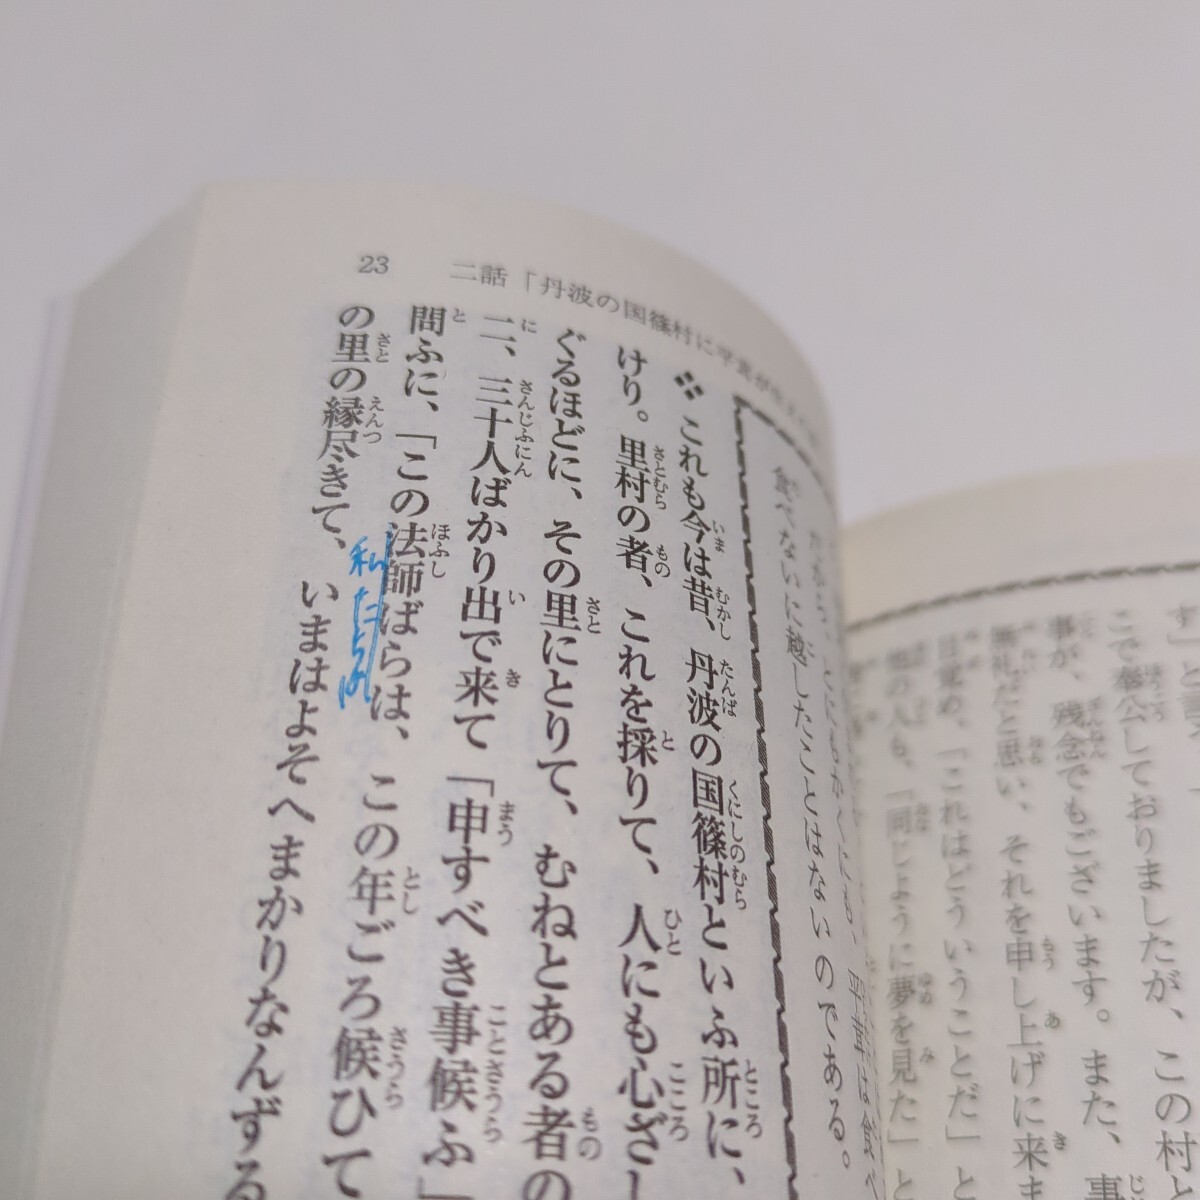 す」と
こで奉公しておりましたが、この村と
事が、残念でもございます。また、事
無礼だと思い、それを申し上げに来ま
目覚め、「これはどういうことだ」と
他の人も、「同じように夢を見た」と
とにもかくにも、平茸は食べ
食べないに越したことはないのである。
23 二話「丹波の国篠村に平茸が
これも今は昔、丹波の国篠村といふ所に、
けり。里村の者、これを採りて、人にも心ざし
ぐるほどに、その里にとりて、むねとある者の
二、三十人ばかり出で来て「申すべき事候ふ」
問ふに、「この法師ばらは、この年ごろ候ひて
私たちは
の里の縁尽きて、いまはよそへまかりなんずる